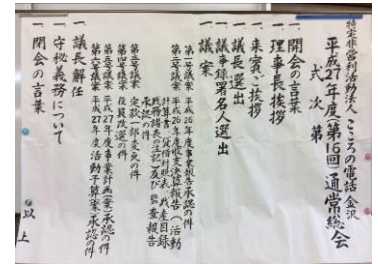 特定非営利活動法人こころの電話金沢
平成27年度(第16回)通常総会
式次第
一、開会の言葉
一、理事長挨拶
一、来賓ご挨拶
一、議長選出
一、議事録署名人選出
一、議案
第一号議案 平成26年度事業報告承認の件
第二号議案 平成26年度収支決算報告(活動
計算書・貸借対照表、財産目録
財務諸表の注記)及び監査報告
承認の件
第三号議案 定款一部変更の件
第四号議案 役員改選の件
第五号議案 平成27年度事業計画(案)承認の件
第六号議案 平成27年度活動予算(案)承認の件
一、議長解任
一、守秘義務について
一、閉会の言葉
以上